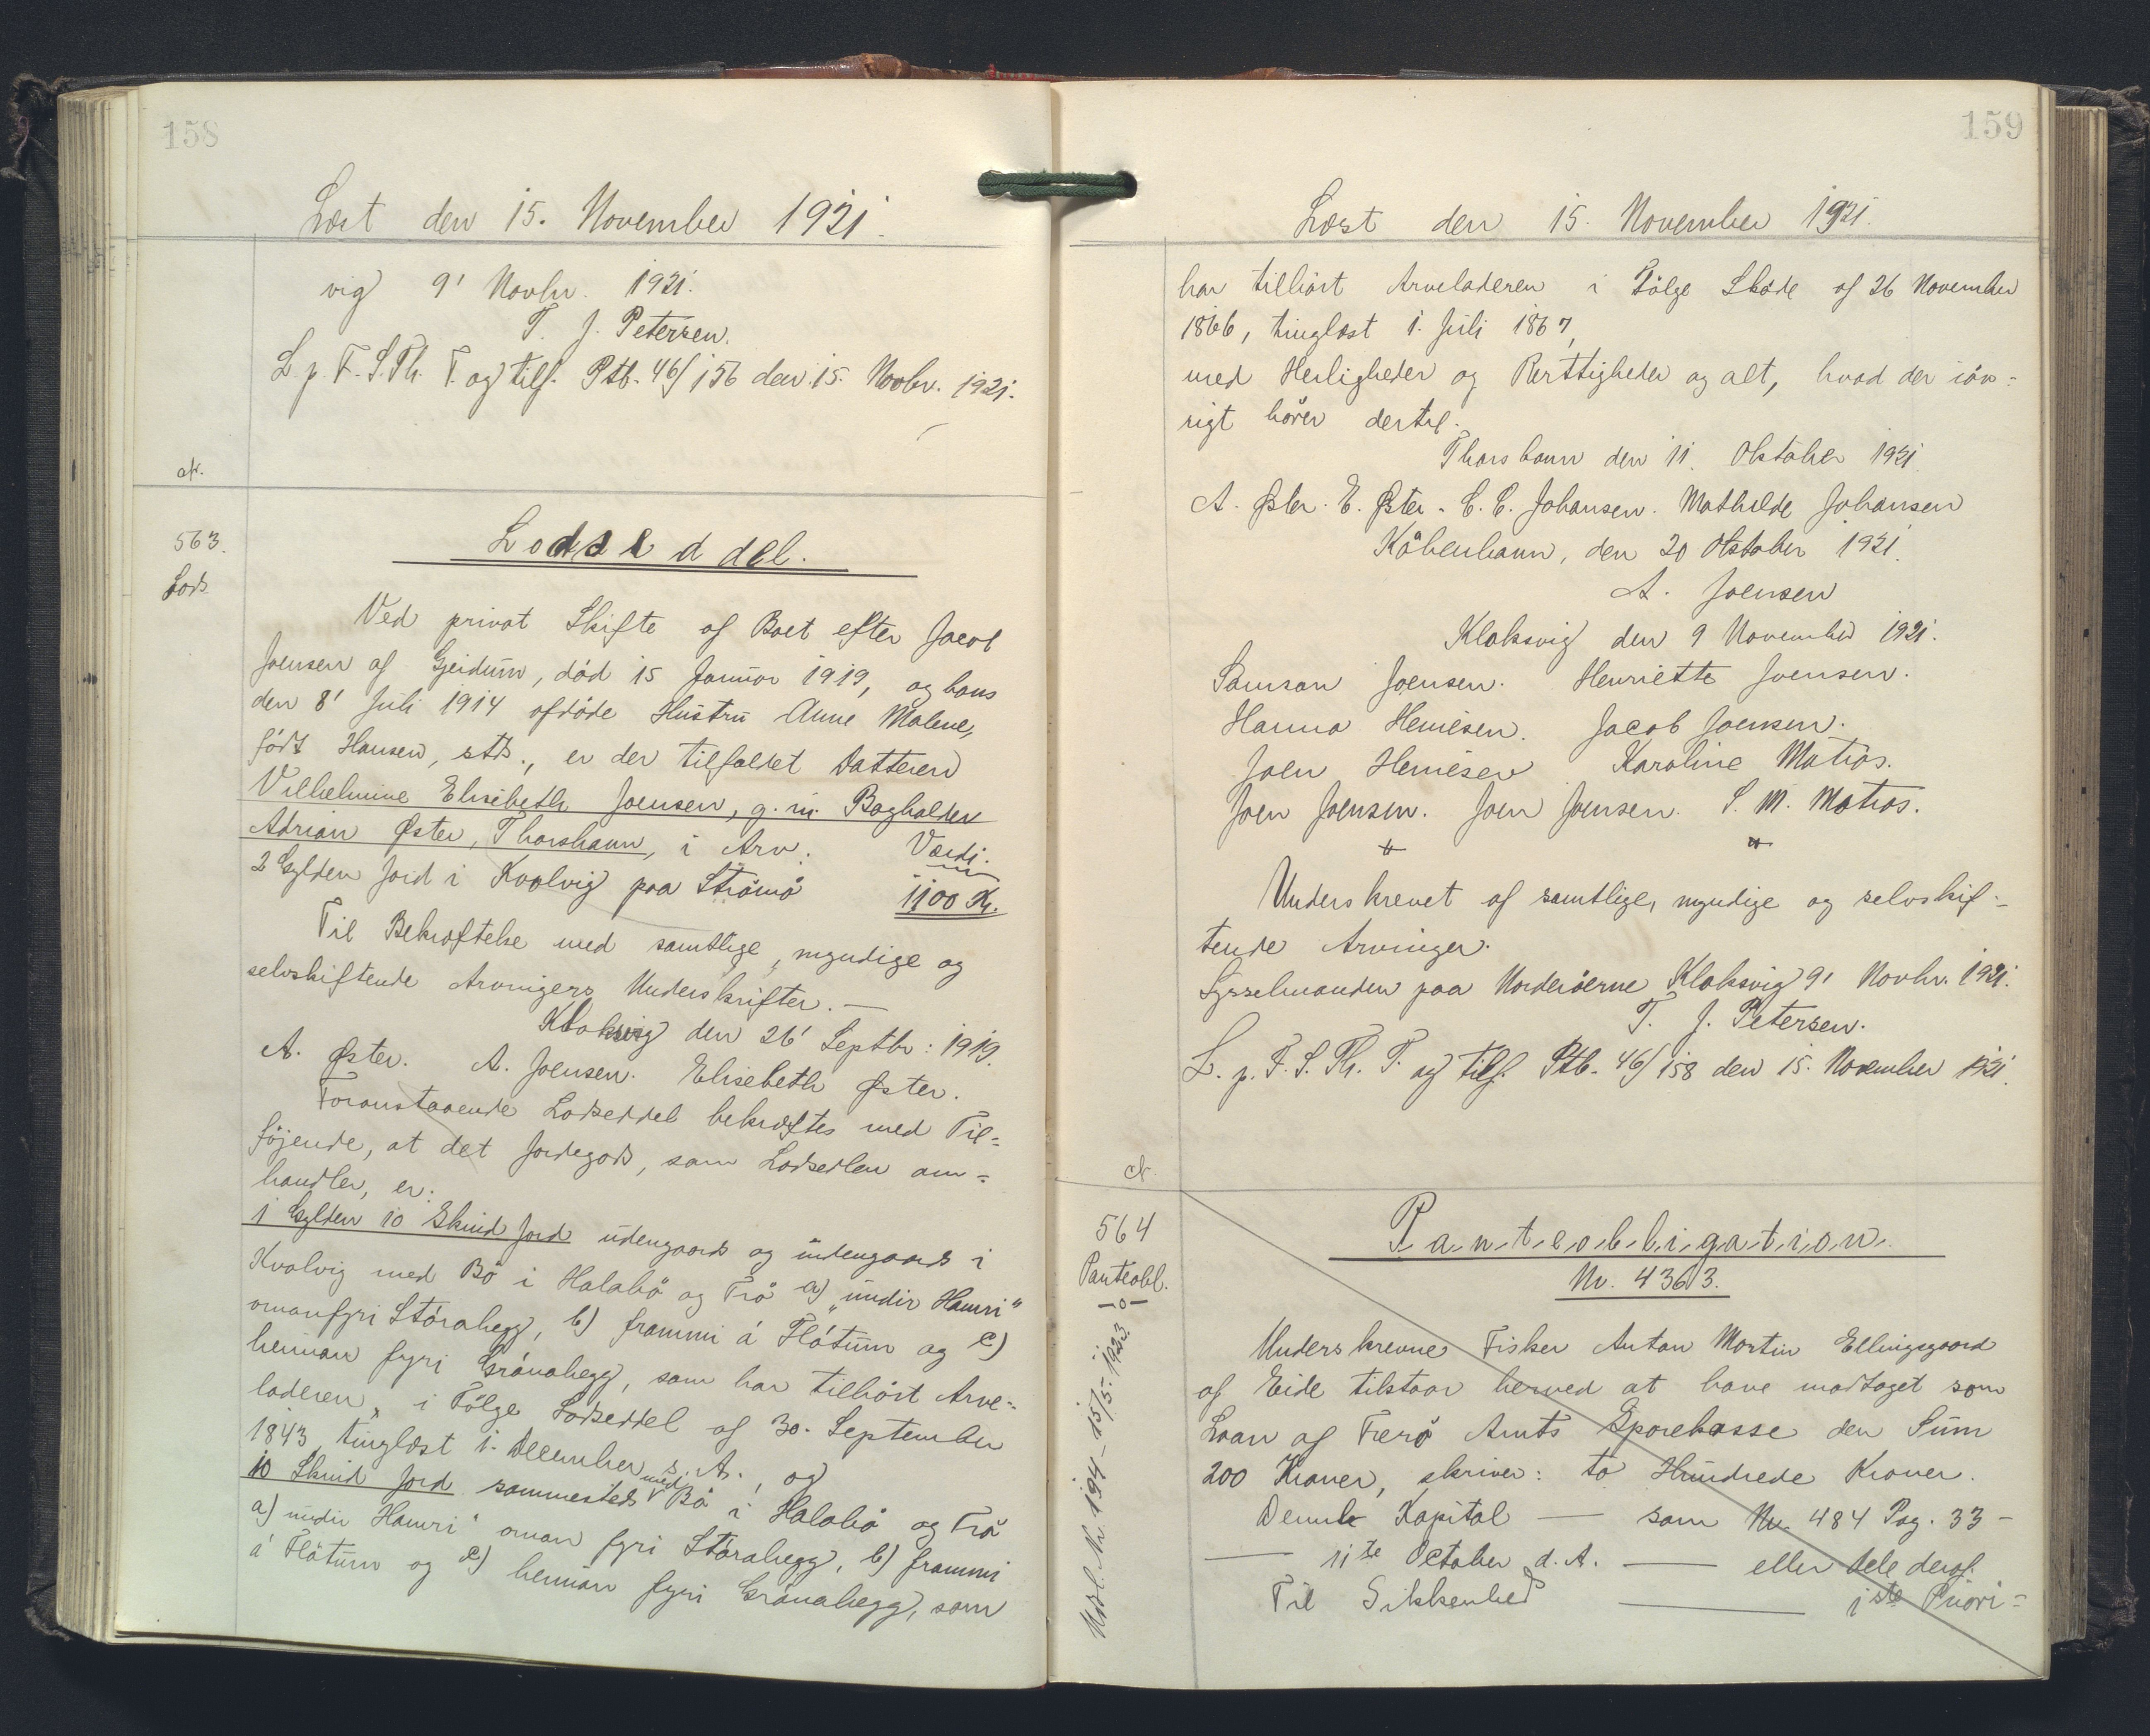 158
Læst den 15. November 1921.
vig 9' Novbr. 1921.
T. J. Petersen.
L. p. F. S. Th. T. og tilf. Ptb. 46/156 den 15. Novbr. 1921.
cfr.
563.
Lods.
Lodseddel.
Ved privat Skifte af Boet efter Jacob
Joensen af Gjeidum, død 15 Januar 1919, og hans
den 8' Juli 1914 afdøde Hustru Anne Malene,
født Hansen, sttds., er der tilfaldet Datteren
Vilhelmine Elisebeth Joensen, g. m. Bogholder
Adrian Øster, Thorshavn, i Arv: Værdi.
2 Gylden Jord i Kvalvig paa Strømø 1100 Kr.
Til Bekræftelse med samtlige, myndige og
selvskiftende Arvingers Underskrifter. —
Klaksvig den 26' Septbr: 1919.
A. Øster. A. Joensen. Elisebeth Øster.
Foranstaaende Lodseddel bekræftes med Til=
føjende, at det Jordegods, som Lodsedlen om=
handler, er:
1 Gylden 10 Skind Jord udengaards og indengaards i
Kvalvig med Bø i Halabø og Trø a) „undir Hamri"
omanfyri Stórahegg, b) frammi á Fløtum og c)
henian fyri Gránahegg, som har tilhørt Arve=
laderen, i Følge Lodseddel af 30. September
1843, tinglæst 1. December s. A., og
10 Skind Jord sammesteds med Bø i Halabø og Trø
a) undir Hamri" oman fyri Stórahegg, b) frammi
á Fløtum og c) henian fyri Gránahegg, som
159
Læst den 15. November 1921.
har tilhørt Arveladeren i Følge Skøde af 26 November
1866, tinglæst 1. Juli 1867,
med Herligheder og Rettigheder og alt, hvad der iøv=
rigt hører dertil.
Thorshavn den 11. Oktober 1921.
A. Øster. E. Øster. C. C. Johansen. Mathilde Johansen
København, den 20 Oktober 1921.
A. Joensen
Klaksvig den 9 November 1921.
Samson Joensen. Henriette Joensen.
Hanna Heinesen. Jacob Joensen.
Joen Heinesen Karoline Matras.
Joen Joensen. Joen Joensen. S. M. Matras.
" "
Underskrevet af samtlige, myndige og selvskif=
tende Arvinger.
Sysselmanden paa Norderøerne Klaksvig 9' Novbr. 1921.
T. J. Petersen.
L. p. F. S. Th. T. og tilf. Ptb. 46/158 den 15. November 1921.
cfr.
564
Panteobl.
-o-
Udsl. Nr. 194 - 15/5. 1923.
Panteobligation.
Nr. 4363.
Underskrevne Fisker Anton Martin Ellingsgaard
af Eide tilstaar herved at have modtaget som
Laan af Færø Amts Sparekasse den Sum
200 Kroner, skriver: to Hundrede Kroner.
Denne Kapital — som Nr. 484 Pag. 33 —
— 11te October d. A. — eller dele deraf.
Til Sikkerhed — 1ste Priori=